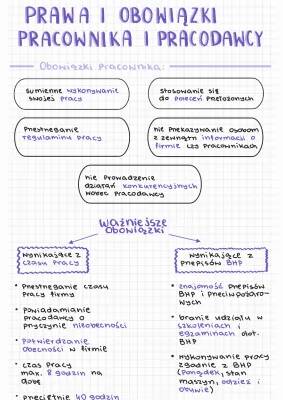 PRAWA I OBOWIĄZKI
PRACOWNIKA I PRACODAWCY
Obowiązki pracownika:
sumienne wykonywanie
swojej pracy
stosowanie się
do poleceń przełożonych
przestrzeganie
regulaminu pracy
nie przekazywanie osobom
z zewnątrz informacji o
firmie czy pracownikach
nie prowadzenie
działań konkurencyjnych
wobec pracodawcy
ważniejsze
obowiązki
wynikające z
czasu pracy
• przestrzeganie czasu
pracy firmy
• powiadamianie
pracodawcy o
przyczynie nieobecności
• potwierdzanie
obecności w firmie
• czas pracy
max. 8 godzin na
dobę
• przeciętnie 40 godzin
wynikające z
przepisów BHP
• znajomość przepisów
BHP i przeciwpożaro-
wych
• branie udziału w
szkoleniach i
egzaminach dot.
BHP
• wykonywanie pracy
zgodnie z BHP
(porządek, stan
maszyn, odzież i
obuwie)